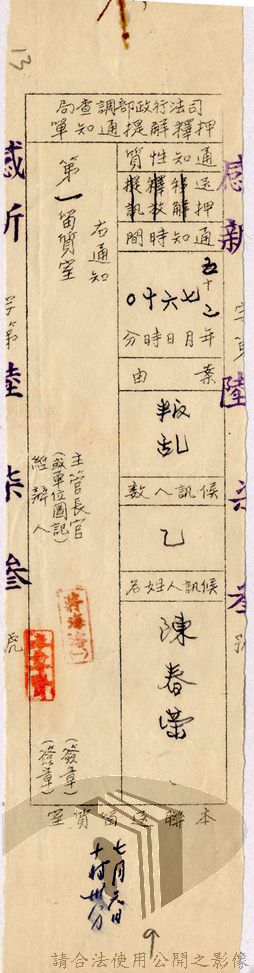 13
司法行政部調查局
押釋解提通知單
通知性質
送押 移解 釋放 提訊
通知時間
五十二年七月六日十時0分
案由
叛乱
候訊人數
乙
候訊人姓名
陳春榮
右通知
第一留質室
主管長官
(或單位圖記)
(簽章)
經辦人
(簽章)
本聯送留質室
七月六日
十時卅分
感新
字第
陸柒叁
號
感新
字第
陸柒叁
號
請合法使用公開之影像